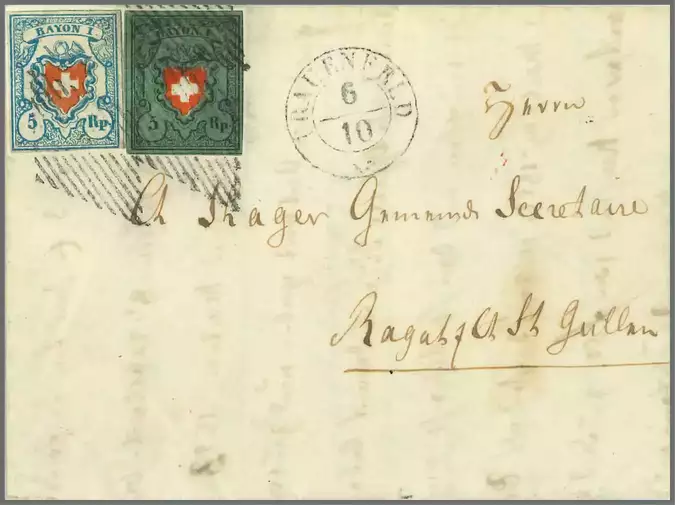 RAYON I
5 Rp.
RAYON I
5 Rp.
FRAUENFELD
6
10
Herrn
Ch Kager Gemeinds Secretaire
Ragatz Ct St Gallen